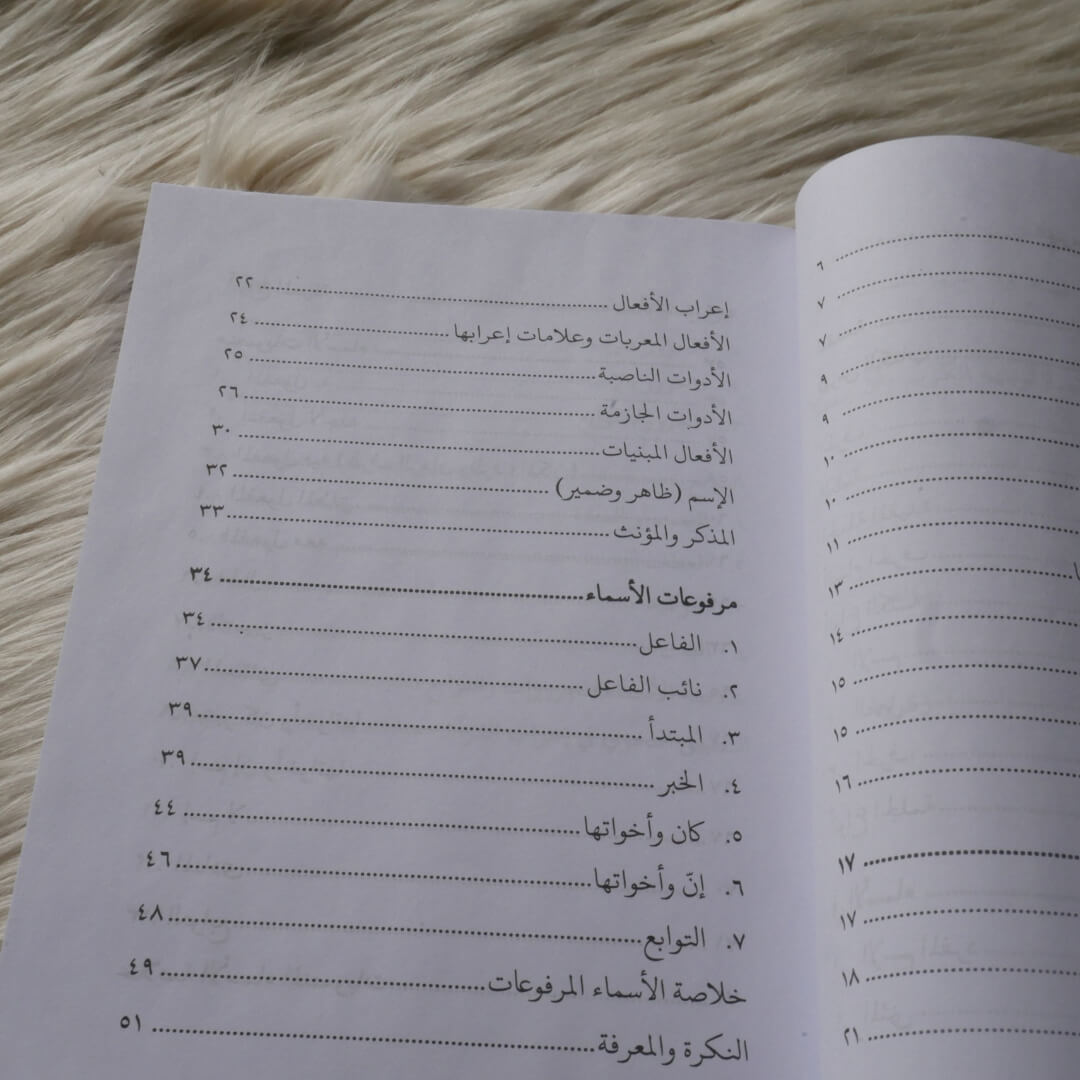 ٦
٧
٧
٩
٩
١٠
١٠
١١
١٣
١٤
١٥
١٥
١٦
١٧
١٧
١٨
٢١
إعراب الأفعال ........ ٢٢
الأفعال المعربات وعلامات إعرابها ........ ٢٤
الأدوات الناصبة ........ ٢٥
الأدوات الجازمة ........ ٢٦
الأفعال المبنيات ........ ٣٠
الإسم (ظاهر وضمير) ........ ٣٢
المذكر والمؤنث ........ ٣٣
مرفوعات الأسماء ........ ٣٤
١. الفاعل ........ ٣٤
٢. نائب الفاعل ........ ٣٧
٣. المبتدأ ........ ٣٩
٤. الخبر ........ ٣٩
٥. كان وأخواتها ........ ٤٤
٦. إنّ وأخواتها ........ ٤٦
٧. التوابع ........ ٤٨
خلاصة الأسماء المرفوعات ........ ٤٩
النكرة والمعرفة ........ ٥١